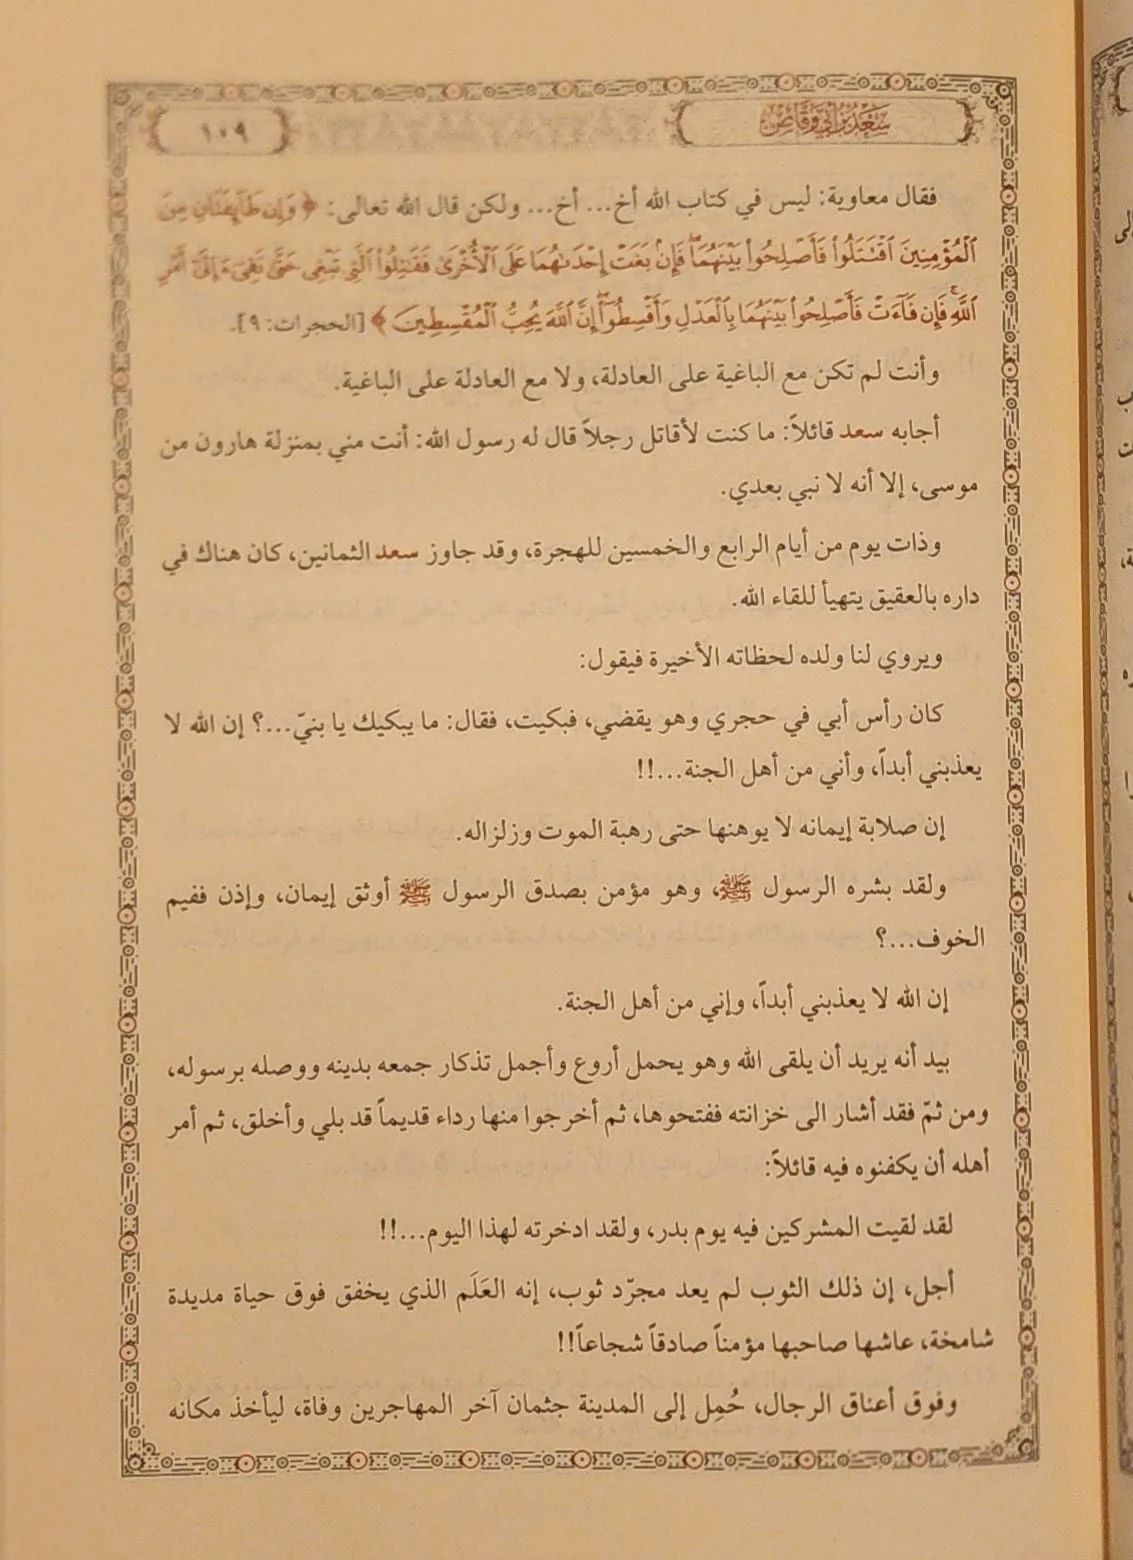 سعد بن أبي وقاص
١٠٩
فقال معاوية: ليس في كتاب الله أخ... أخ... ولكن قال الله تعالى: ﴿ وَإِن طَآئِفَتَانِ مِنَ
ٱلْمُؤْمِنِينَ ٱقْتَتَلُوا۟ فَأَصْلِحُوا۟ بَيْنَهُمَا ۖ فَإِنۢ بَغَتْ إِحْدَىٰهُمَا عَلَى ٱلْأُخْرَىٰ فَقَٰتِلُوا۟ ٱلَّتِى تَبْغِى حَتَّىٰ تَفِىٓءَ إِلَىٰٓ أَمْرِ
ٱللَّهِ ۚ فَإِن فَآءَتْ فَأَصْلِحُوا۟ بَيْنَهُمَا بِٱلْعَدْلِ وَأَقْسِطُوٓا۟ ۖ إِنَّ ٱللَّهَ يُحِبُّ ٱلْمُقْسِطِينَ ﴾ [الحجرات: ٩].
وأنت لم تكن مع الباغية على العادلة، ولا مع العادلة على الباغية.
أجابه سعد قائلاً: ما كنت لأقاتل رجلاً قال له رسول الله: أنت مني بمنزلة هارون من
موسى، إلا أنه لا نبي بعدي.
وذات يوم من أيام الرابع والخمسين للهجرة، وقد جاوز سعد الثمانين، كان هناك في
داره بالعقيق يتهيأ للقاء الله.
ويروي لنا ولده لحظاته الأخيرة فيقول:
كان رأس أبي في حجري وهو يقضي، فبكيت، فقال: ما يبكيك يا بنيّ...؟ إن الله لا
يعذبني أبداً، وأني من أهل الجنة...!!
إن صلابة إيمانه لا يوهنها حتى رهبة الموت وزلزاله.
ولقد بشره الرسول ﷺ، وهو مؤمن بصدق الرسول ﷺ أوثق إيمان، وإذن ففيم
الخوف...؟
إن الله لا يعذبني أبداً، وإني من أهل الجنة.
بيد أنه يريد أن يلقى الله وهو يحمل أروع وأجمل تذكار جمعه بدينه ووصله برسوله،
ومن ثمّ فقد أشار الى خزانته ففتحوها، ثم أخرجوا منها رداء قديماً قد بلي وأخلق، ثم أمر
أهله أن يكفنوه فيه قائلاً:
لقد لقيت المشركين فيه يوم بدر، ولقد ادخرته لهذا اليوم...!!
أجل، إن ذلك الثوب لم يعد مجرّد ثوب، إنه العَلَم الذي يخفق فوق حياة مديدة
شامخة، عاشها صاحبها مؤمناً صادقاً شجاعاً!!
وفوق أعناق الرجال، حُمِل إلى المدينة جثمان آخر المهاجرين وفاة، ليأخذ مكانه